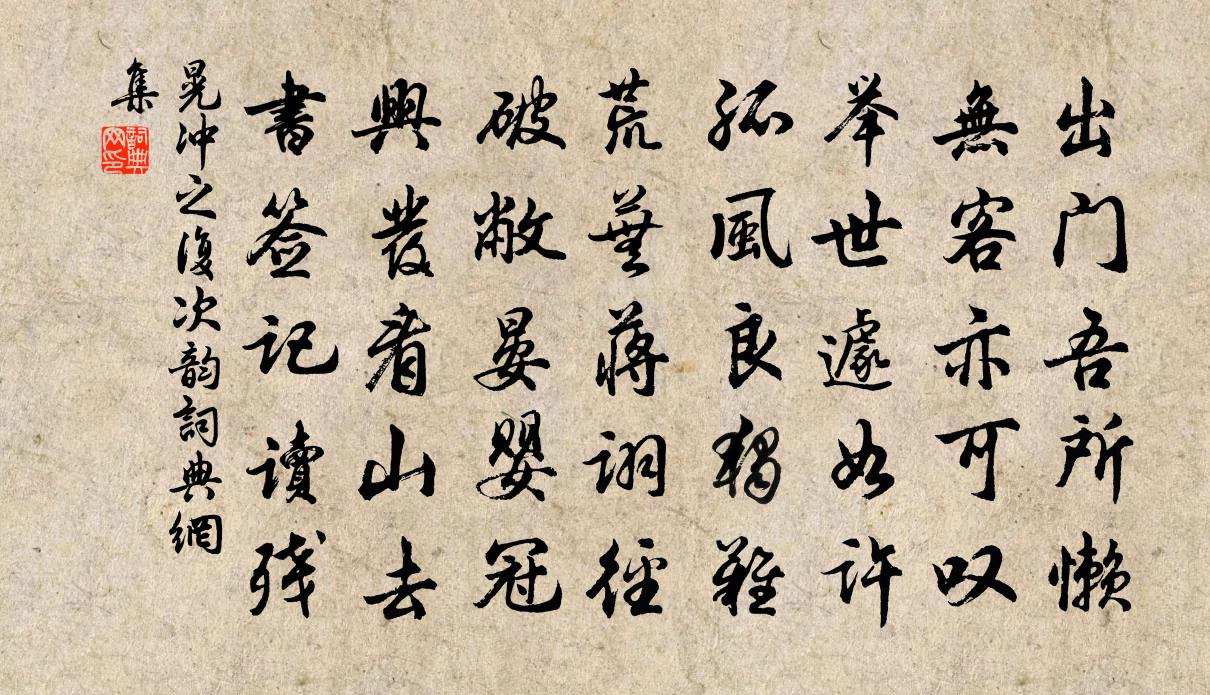 出门吾所懒
無客亦可叹
举世遽如许
孤風良獨難
荒蕪蒋詡徑
破敝晏嬰冠
興發看山去
書签記讀残
晁沖之復次韵詞典網
集
詞典
网印